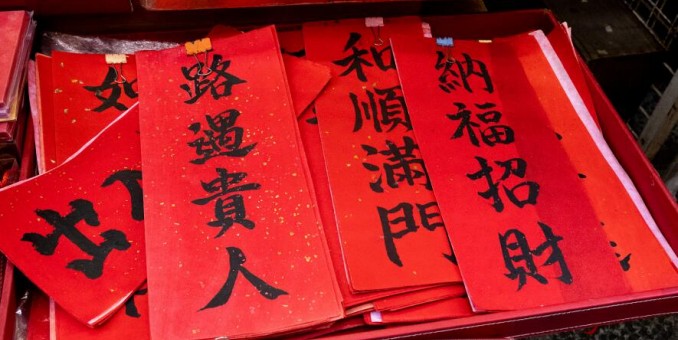 如
路遇貴人
和順滿門
納福招財